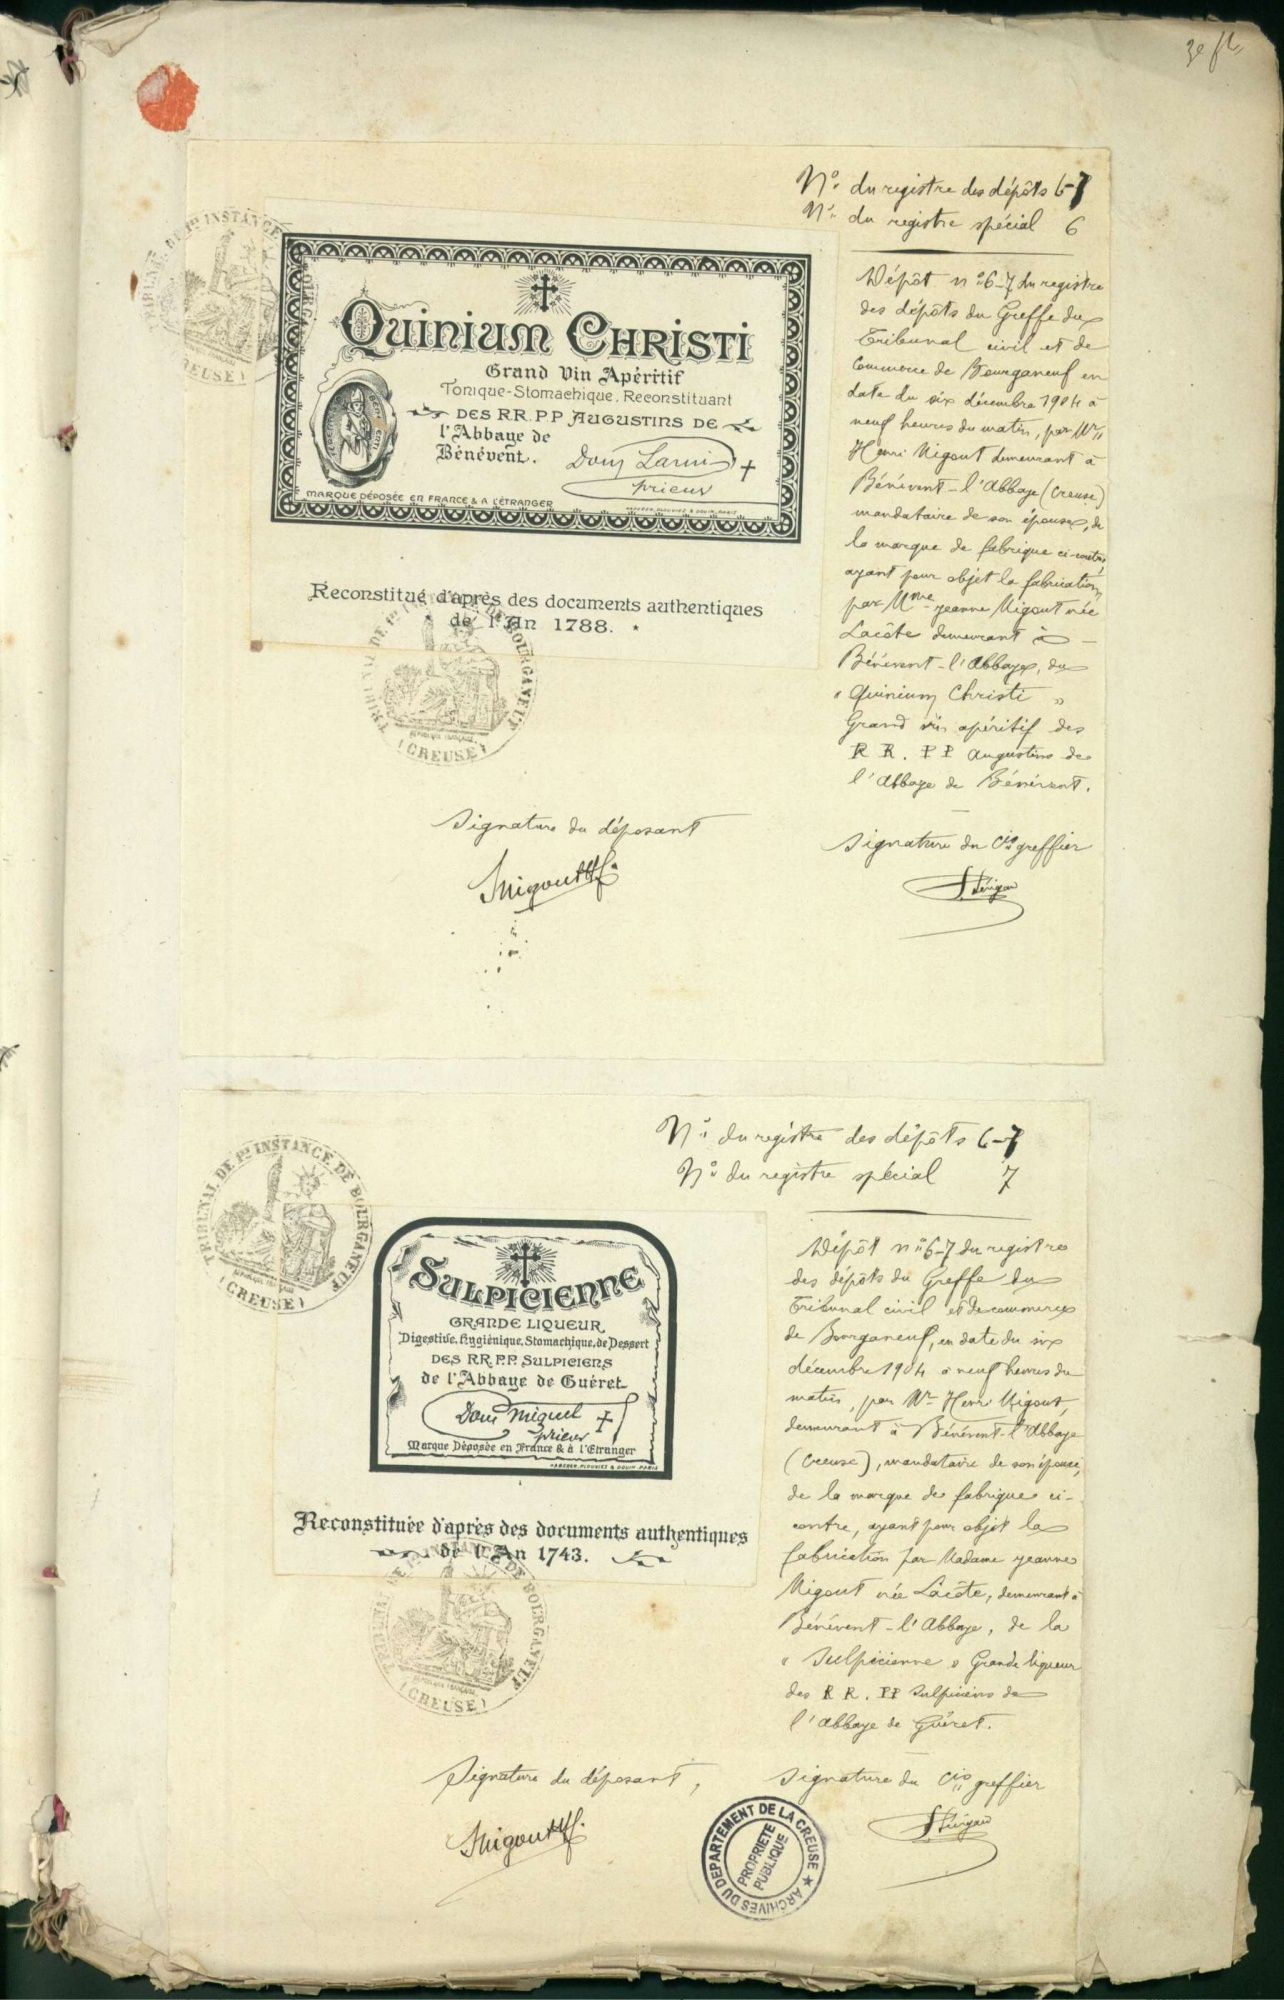 3e f
N° du registre des dépôts 6-7
N° du registre spécial 6
TRIBUNAL DE 1re INSTANCE DE BOURGANEUF
(CREUSE)
QUINIUM CHRISTI
Grand Vin Apéritif
Tonique-Stomachique, Reconstituant
DES RR. P.P. AUGUSTINS DE
l'Abbaye de
Bénévent.
Dom Larni
prieur
MARQUE DÉPOSÉE EN FRANCE & A L'ÉTRANGER
HABERER, PLOUVIEZ & DOUIN, PARIS
Reconstitué d'après des documents authentiques
de l'An 1788.
TRIBUNAL DE 1re INSTANCE DE BOURGANEUF
RÉPUBLIQUE FRANÇAISE
(CREUSE)
Dépôt n° 6-7 du registre
des dépôts du Greffe du
Tribunal civil et de
Commerce de Bourganeuf en
date du six décembre 1904 à
neuf heures du matin, par Mr
Henri Nigout demeurant à
Bénévent-l'Abbaye (Creuse)
mandataire de son épouse, de
la marque de fabrique ci-contre,
ayant pour objet la fabrication
par Mme Jeanne Nigout née
Lacôte demeurant à
Bénévent-l'Abbaye, du
" Quinium Christi "
Grand vin apéritif des
R R. P P Augustins de
l'Abbaye de Bénévent.
Signature du déposant
Signature du Cis greffier
N° du registre des dépôts 6-7
N° du registre spécial 7
TRIBUNAL DE 1re INSTANCE DE BOURGANEUF
(CREUSE)
SULPICIENNE
GRANDE LIQUEUR
Digestive, Hygiénique, Stomachique, de Dessert
DES RR. P.P. SULPICIENS
de l'Abbaye de Guéret
Dom Miguel
prieur
Marque Déposée en France & à l'Etranger
HABERER, PLOUVIEZ & DOUIN, PARIS
Reconstituée d'après des documents authentiques
de l'An 1743.
TRIBUNAL DE 1re INSTANCE DE BOURGANEUF
RÉPUBLIQUE FRANÇAISE
(CREUSE)
Dépôt n° 6-7 du registre
des dépôts du Greffe du
Tribunal civil et de commerce
de Bourganeuf, en date du six
décembre 1904 à neuf heures du
matin, par Mr Henri Nigout,
demeurant à Bénévent-l'Abbaye
(Creuse), mandataire de son épouse,
de la marque de fabrique ci-
contre, ayant pour objet la
fabrication par Madame Jeanne
Nigout née Lacôte, demeurant à
Bénévent-l'Abbaye, de la
" Sulpicienne " Grande liqueur
des R R. PP Sulpiciens de
l'Abbaye de Guéret.
Signature du déposant,
Signature du Cis greffier
ARCHIVES DU DEPARTEMENT DE LA CREUSE
PROPRIETE
PUBLIQUE